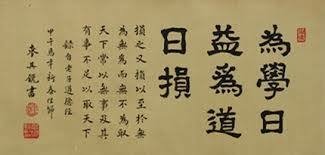 為學日
益爲道
日損
損之又損以至於無
為無為而無不為取
天下常以無事及其
有事不足以取天下
錄自老子道德經
甲午 年 春
其 書